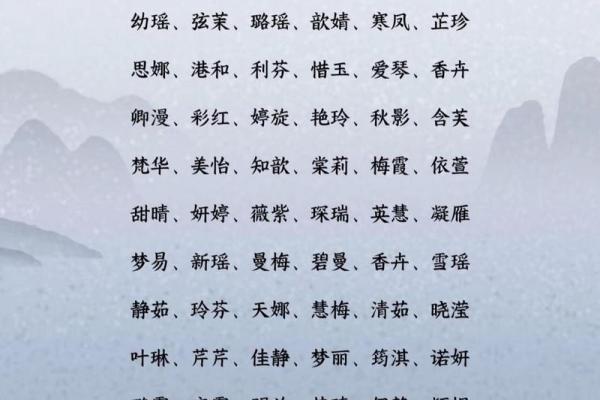 幼瑶、弦茉、璐瑶、歆婧、寒凤、芷珍
思娜、港和、利芬、惜玉、爱琴、香卉
卿漫、彩红、婷旋、艳玲、秋影、含芙
梵华、美怡、知歆、棠莉、梅霞、依萱
甜晴、妍婷、薇紫、琛瑞、英慧、凝雁
梦易、新瑶、曼梅、碧曼、香卉、雪瑶
静茹、玲芬、天娜、慧梅、清茹、晓滢
叶琳、芹芹、佳静、梦丽、筠淇、诺妍